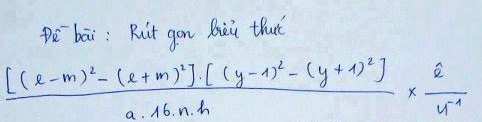 Đề bài : Rút gọn biểu thức
[(e-m)²-(e+m)²].[(y-1)²-(y+1)²]
a.16.n.h × ê/y⁻¹